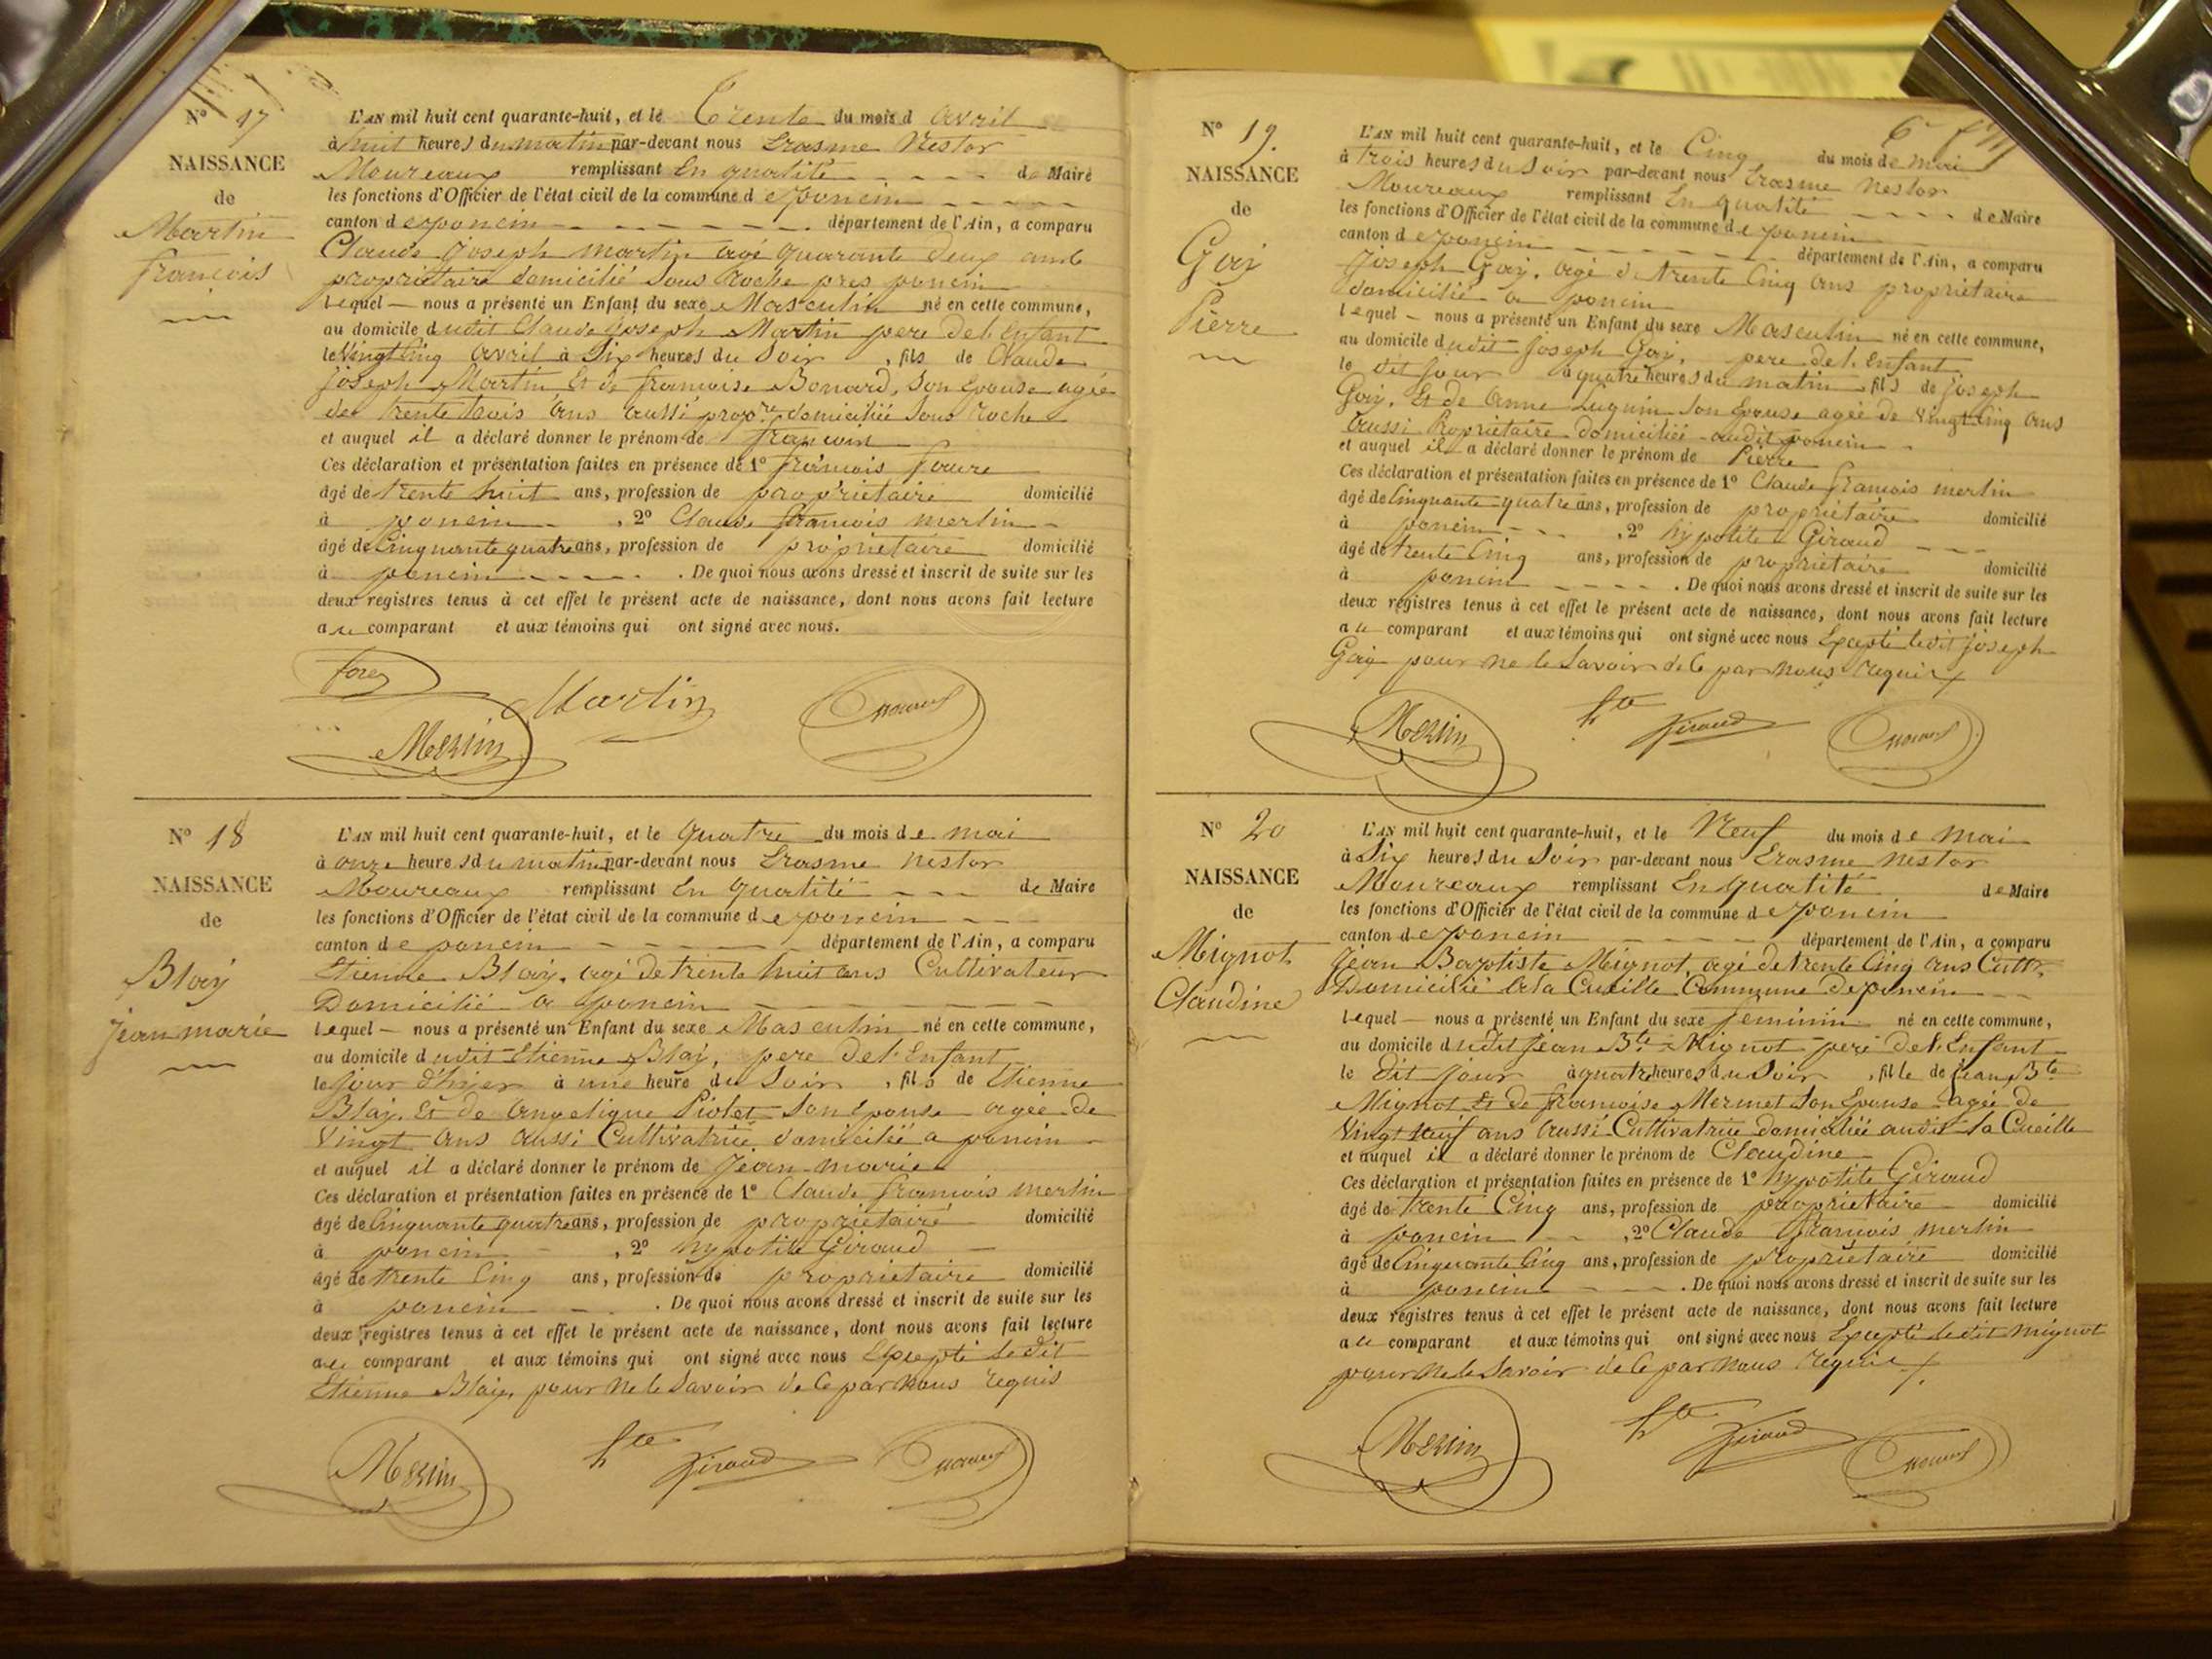 N° 17
NAISSANCE
de
Martin
françois
L'AN mil huit cent quarante-huit, et le Trente du mois d avril
à huit heures du matin par-devant nous Erasme Nestor
Moureaux remplissant En qualité de Maire
les fonctions d'Officier de l'état civil de la commune de poncin
canton de poncin département de l'Ain, a comparu
Claude joseph martin agé quarante deux ans
propriétaire domicilié Sous Roche pres poncin
Lequel nous a présenté un Enfant du sexe Masculin né en cette commune,
au domicile dudit Claude joseph Martin pere de l'Enfant
le Vingt Cinq avril à Six heures du Soir, fils de Claude
joseph Martin Et de françoise Bonard, Son Epouse agée
de trente trois ans aussi propre domiciliée Sous roche
et auquel il a déclaré donner le prénom de françois
Ces déclaration et présentation faites en présence de 1° françois
âgé de trente huit ans, profession de propriétaire domicilié
à poncin, 2° Claude françois merlin
âgé de Cinquante quatre ans, profession de propriétaire domicilié
à poncin. De quoi nous avons dressé et inscrit de suite sur les
deux registres tenus à cet effet le présent acte de naissance, dont nous avons fait lecture
au comparant et aux témoins qui ont signé avec nous.
Martin
Merlin
N° 18
NAISSANCE
de
Blay
jean marie
L'AN mil huit cent quarante-huit, et le quatre du mois de mai
à onze heures du matin par-devant nous Erasme nestor
Moureaux remplissant En qualité de Maire
les fonctions d'Officier de l'état civil de la commune de poncin
canton de poncin département de l'Ain, a comparu
Etienne Blay, agé de trente huit ans Cultivateur
Domicilié a poncin
Lequel nous a présenté un Enfant du sexe Masculin né en cette commune,
au domicile dudit Etienne Blay, pere de l'Enfant
le jour d'hyer à une heure du Soir, fils de Etienne
Blay, Et de angelique Piolet Son Epouse agée de
Vingt ans aussi Cultivatrice domiciliée a poncin
et auquel il a déclaré donner le prénom de jean marie
Ces déclaration et présentation faites en présence de 1° Claude françois merlin
âgé de Cinquante quatre ans, profession de propriétaire domicilié
à poncin, 2° hypolite Giraud
âgé de trente Cinq ans, profession de propriétaire domicilié
à poncin. De quoi nous avons dressé et inscrit de suite sur les
deux registres tenus à cet effet le présent acte de naissance, dont nous avons fait lecture
au comparant et aux témoins qui ont signé avec nous Excepté ledit
Etienne Blay, pour ne le Savoir de Ce par nous requis
Merlin hte Giraud
N° 19.
NAISSANCE
de
Goy
Pierre
L'AN mil huit cent quarante-huit, et le Cinq du mois de mai
à trois heures du Soir par-devant nous Erasme nestor
Moureaux remplissant En qualité de Maire
les fonctions d'Officier de l'état civil de la commune de poncin
canton de poncin département de l'Ain, a comparu
Joseph Goy, agé de trente Cinq ans propriétaire
domicilié a poncin
Lequel nous a présenté un Enfant du sexe Masculin né en cette commune,
au domicile dudit joseph Goy, pere de l'Enfant
le dit jour à quatre heures du matin, fils de joseph
Goy, Et de anne Luguin Son Epouse agée de Vingt Cinq ans
aussi Propriétaire domiciliée audit poncin
et auquel il a déclaré donner le prénom de Pierre
Ces déclaration et présentation faites en présence de 1° Claude françois merlin
âgé de Cinquante quatre ans, profession de propriétaire domicilié
à poncin, 2° hypolite Giraud
âgé de trente Cinq ans, profession de propriétaire domicilié
à poncin. De quoi nous avons dressé et inscrit de suite sur les
deux registres tenus à cet effet le présent acte de naissance, dont nous avons fait lecture
au comparant et aux témoins qui ont signé avec nous Excepté ledit joseph
Goy pour ne le Savoir de Ce par nous requis
Merlin hte Giraud
N° 20
NAISSANCE
de
Mignot
Claudine
L'AN mil huit cent quarante-huit, et le Neuf du mois de mai
à Six heures du Soir par-devant nous Erasme Nestor
Moureaux remplissant En qualité de Maire
les fonctions d'Officier de l'état civil de la commune de poncin
canton de poncin département de l'Ain, a comparu
Jean Baptiste Mignot, agé de trente Cinq ans Cultr.
Domicilié a la Cueille Commune de poncin
Lequel nous a présenté un Enfant du sexe feminin né en cette commune,
au domicile dudit jean Bte Mignot pere de l'Enfant
le dit jour à quatre heures du Soir, fille de jean Bte
Mignot Et de françoise Mermet Son Epouse agée de
Vingt neuf ans aussi Cultivatrice domiciliée audit la Cueille
et auquel il a déclaré donner le prénom de Claudine
Ces déclaration et présentation faites en présence de 1° hypolite Giraud
âgé de trente Cinq ans, profession de propriétaire domicilié
à poncin, 2° Claude françois merlin
âgé de Cinquante Cinq ans, profession de propriétaire domicilié
à poncin. De quoi nous avons dressé et inscrit de suite sur les
deux registres tenus à cet effet le présent acte de naissance, dont nous avons fait lecture
au comparant et aux témoins qui ont signé avec nous Excepté ledit Mignot
pour ne le Savoir de Ce par nous requis
Merlin hte Giraud